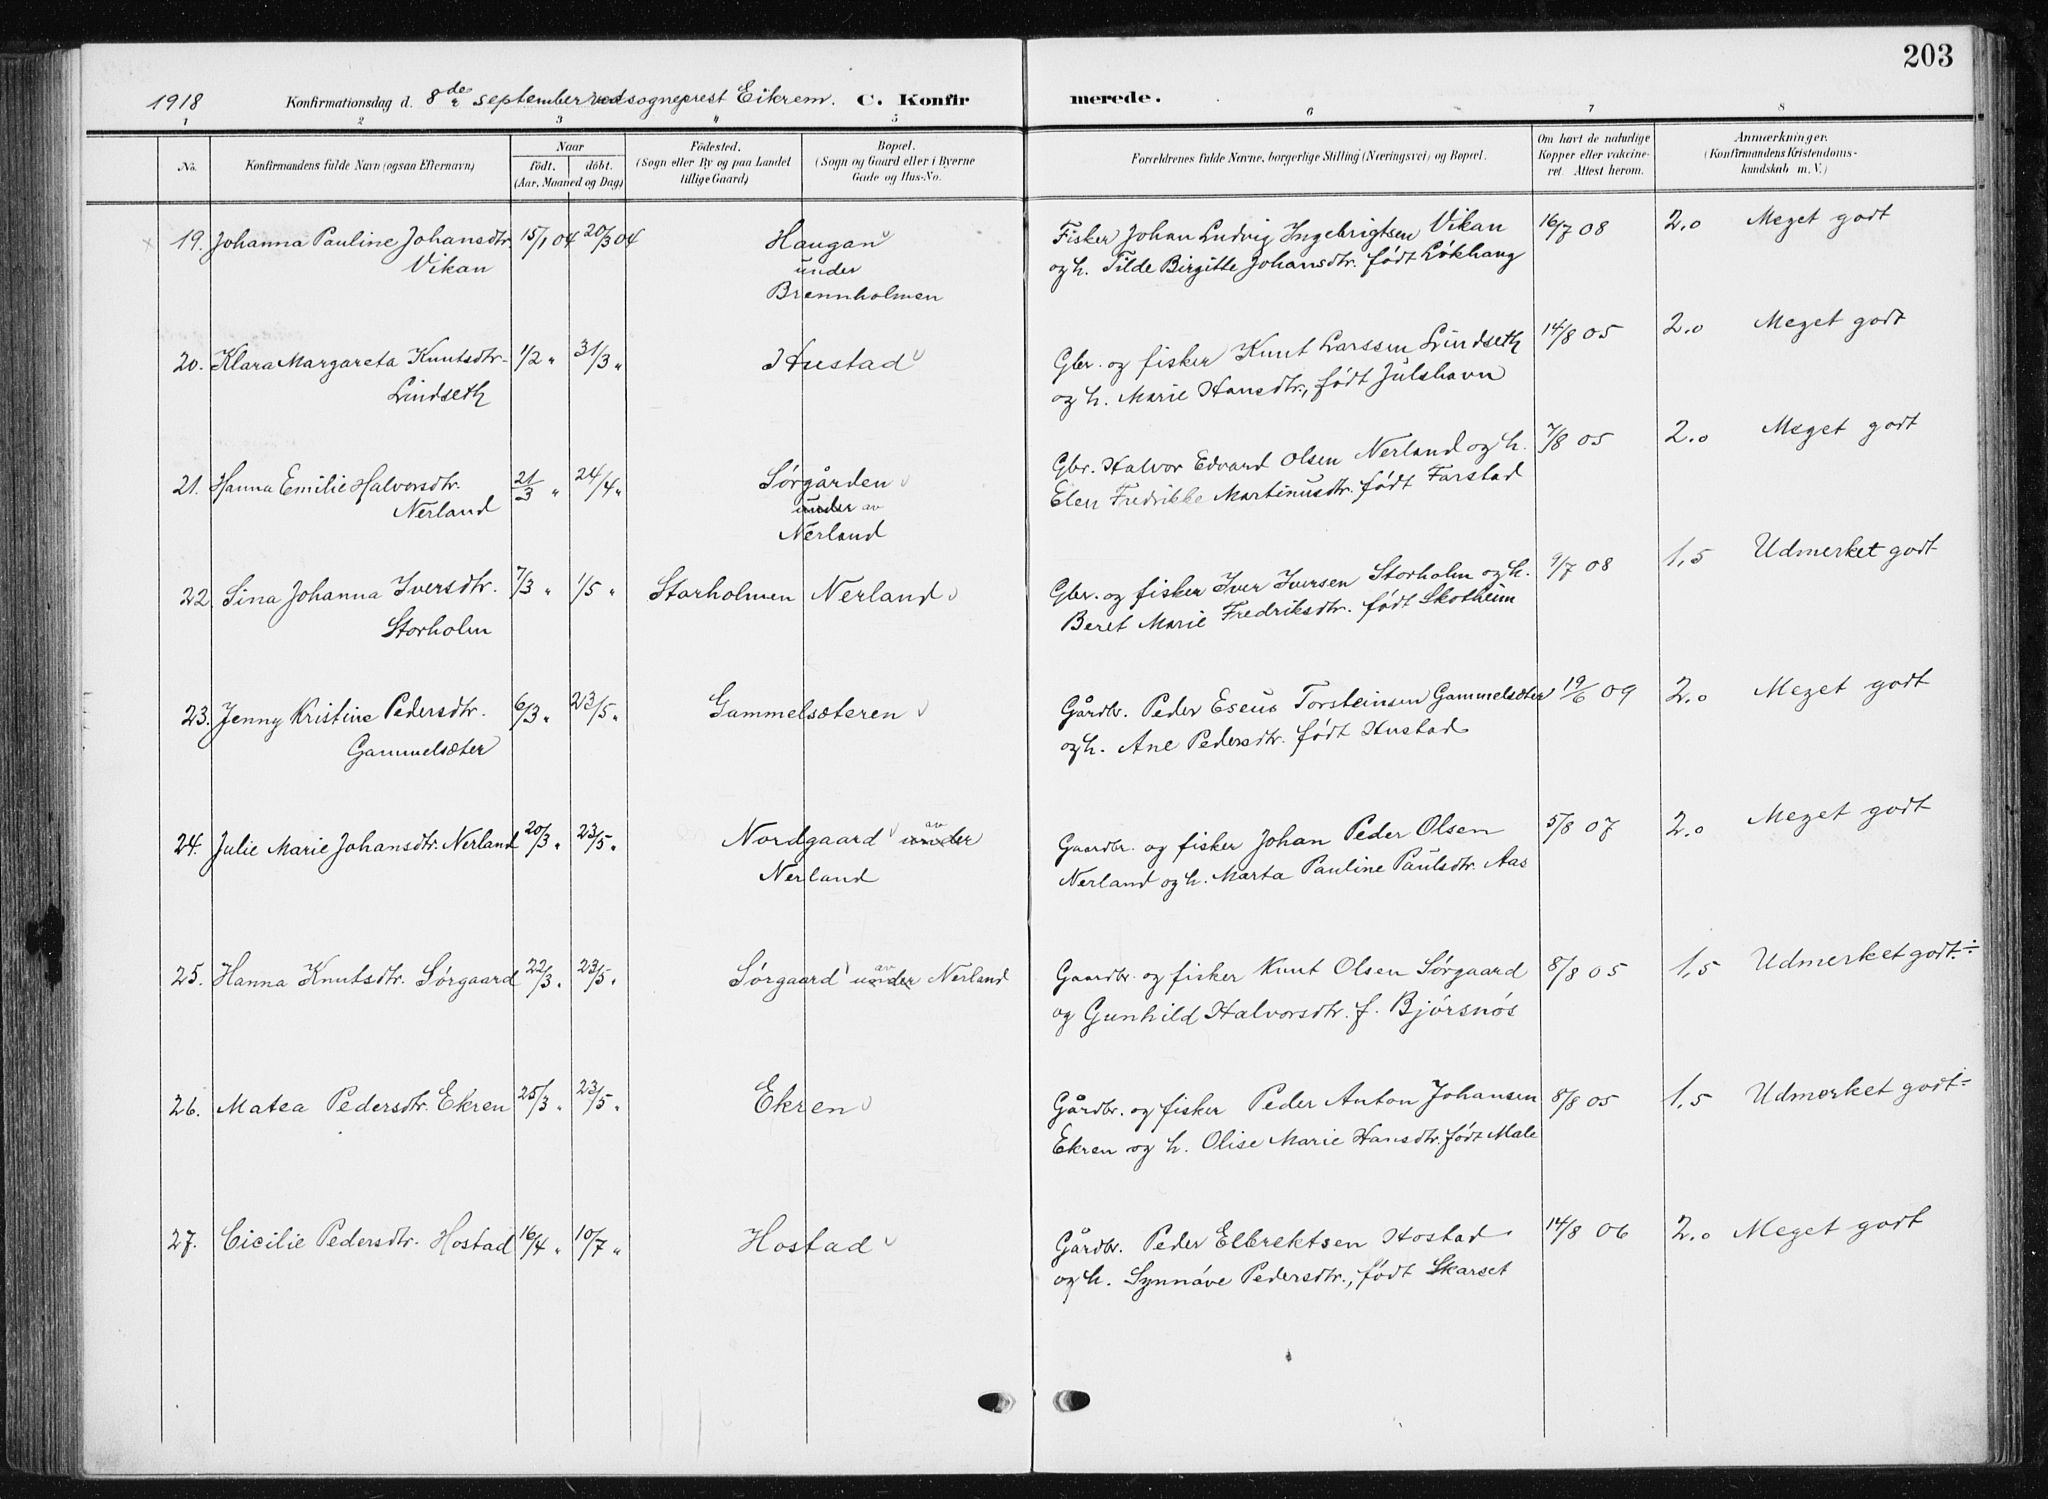 203
1918 Konfirmationsdag d. 8de september ved sogneprest Eikrem. C. Konfirmerede.
1 2 3 4 5 6 7 8
No. Konfirmandens fulde Navn (ogsaa Efternavn) Naar født. døbt. (Aar, Maaned og Dag) Fødested. (Sogn eller By og paa Landet tillige Gaard) Bopæl. (Sogn og Gaard eller i Byerne Gade og Hus-No. Forældrenes fulde Navne, borgerlige Stilling (Næringsvei) og Bopæl. Om havt de naturlige Kopper eller vakcineret. Attest herom. Anmærkninger. (Konfirmandens Kristendomskundskab m. V.)
19. Johanna Pauline Johansdtr. 15/1 04 20/3 04 Haugan Fisker Johan Ludvig Ingebrigtsen Vikan 16/7 08 2.0 Meget godt
Vikan under og h. Tilde Birgitte Johansdtr. født Løkhaug
Brennholmen
20. Klara Margareta Knutsdtr. 1/2 " 31/3 " Hustad Gbr. og fisker Knut Larssen Lindseth 14/8 05 2.0 Meget godt
Lindseth og h. Marie Hansdtr., født Julshavn
21. Hanna Emilie Halvorsdtr. 21/3 " 24/4 " Sørgården Gbr. Halvor Edvard Olsen Nerland og h. 7/8 05 2.0 Meget godt
Nerland under av Elen Fredrikke Martinusdtr. født Farstad
Nerland
22. Sina Johanna Iversdtr. 7/3 " 1/5 " Storholmen Nerland Gbr. og fisker Iver Iversen Storholm og h. 9/7 08 1,5 Udmerket godt
Storholm Beret Marie Fredriksdtr. født Skotheim
23. Jenny Kristine Pedersdtr. 6/3 " 23/5 " Gammelsæteren Gårdbr. Peder Eseus Torsteinsen Gammelsæter 19/6 09 2.0 Meget godt
Gammelsæter og h. Ane Pedersdtr. født Hustad
24. Julie Marie Johansdtr. Nerland 20/3 " 23/5 " Nordgaard under av Gaardbr. og fisker Johan Peder Olsen 5/8 07 2.0 Meget godt
Nerland Nerland og h. Marta Pauline Paulsdtr. Aas
25. Hanna Knutsdtr. Sørgaard 22/3 " 23/5 " Sørgaard under av Nerland Gaardbr. og fisker Knut Olsen Sørgaard 8/8 05 1,5 Udmerket godt ÷
og Gunhild Halvorsdtr. f. Bjørsnøs
26. Matea Pedersdtr. Ekren 25/3 " 23/5 " Ekren Gårdbr. og fisker Peder Anton Johansen 8/8 05 1,5 Udmerket godt ÷
Ekren og h. Olise Marie Hansdtr. født Male
27. Cicilie Pedersdtr. Hostad 16/4 " 10/7 " Hostad Gårdbr. Peder Elbrektsen Hostad 14/8 06 2.0 Meget godt
og h. Synnøve Pedersdtr., født Skarset